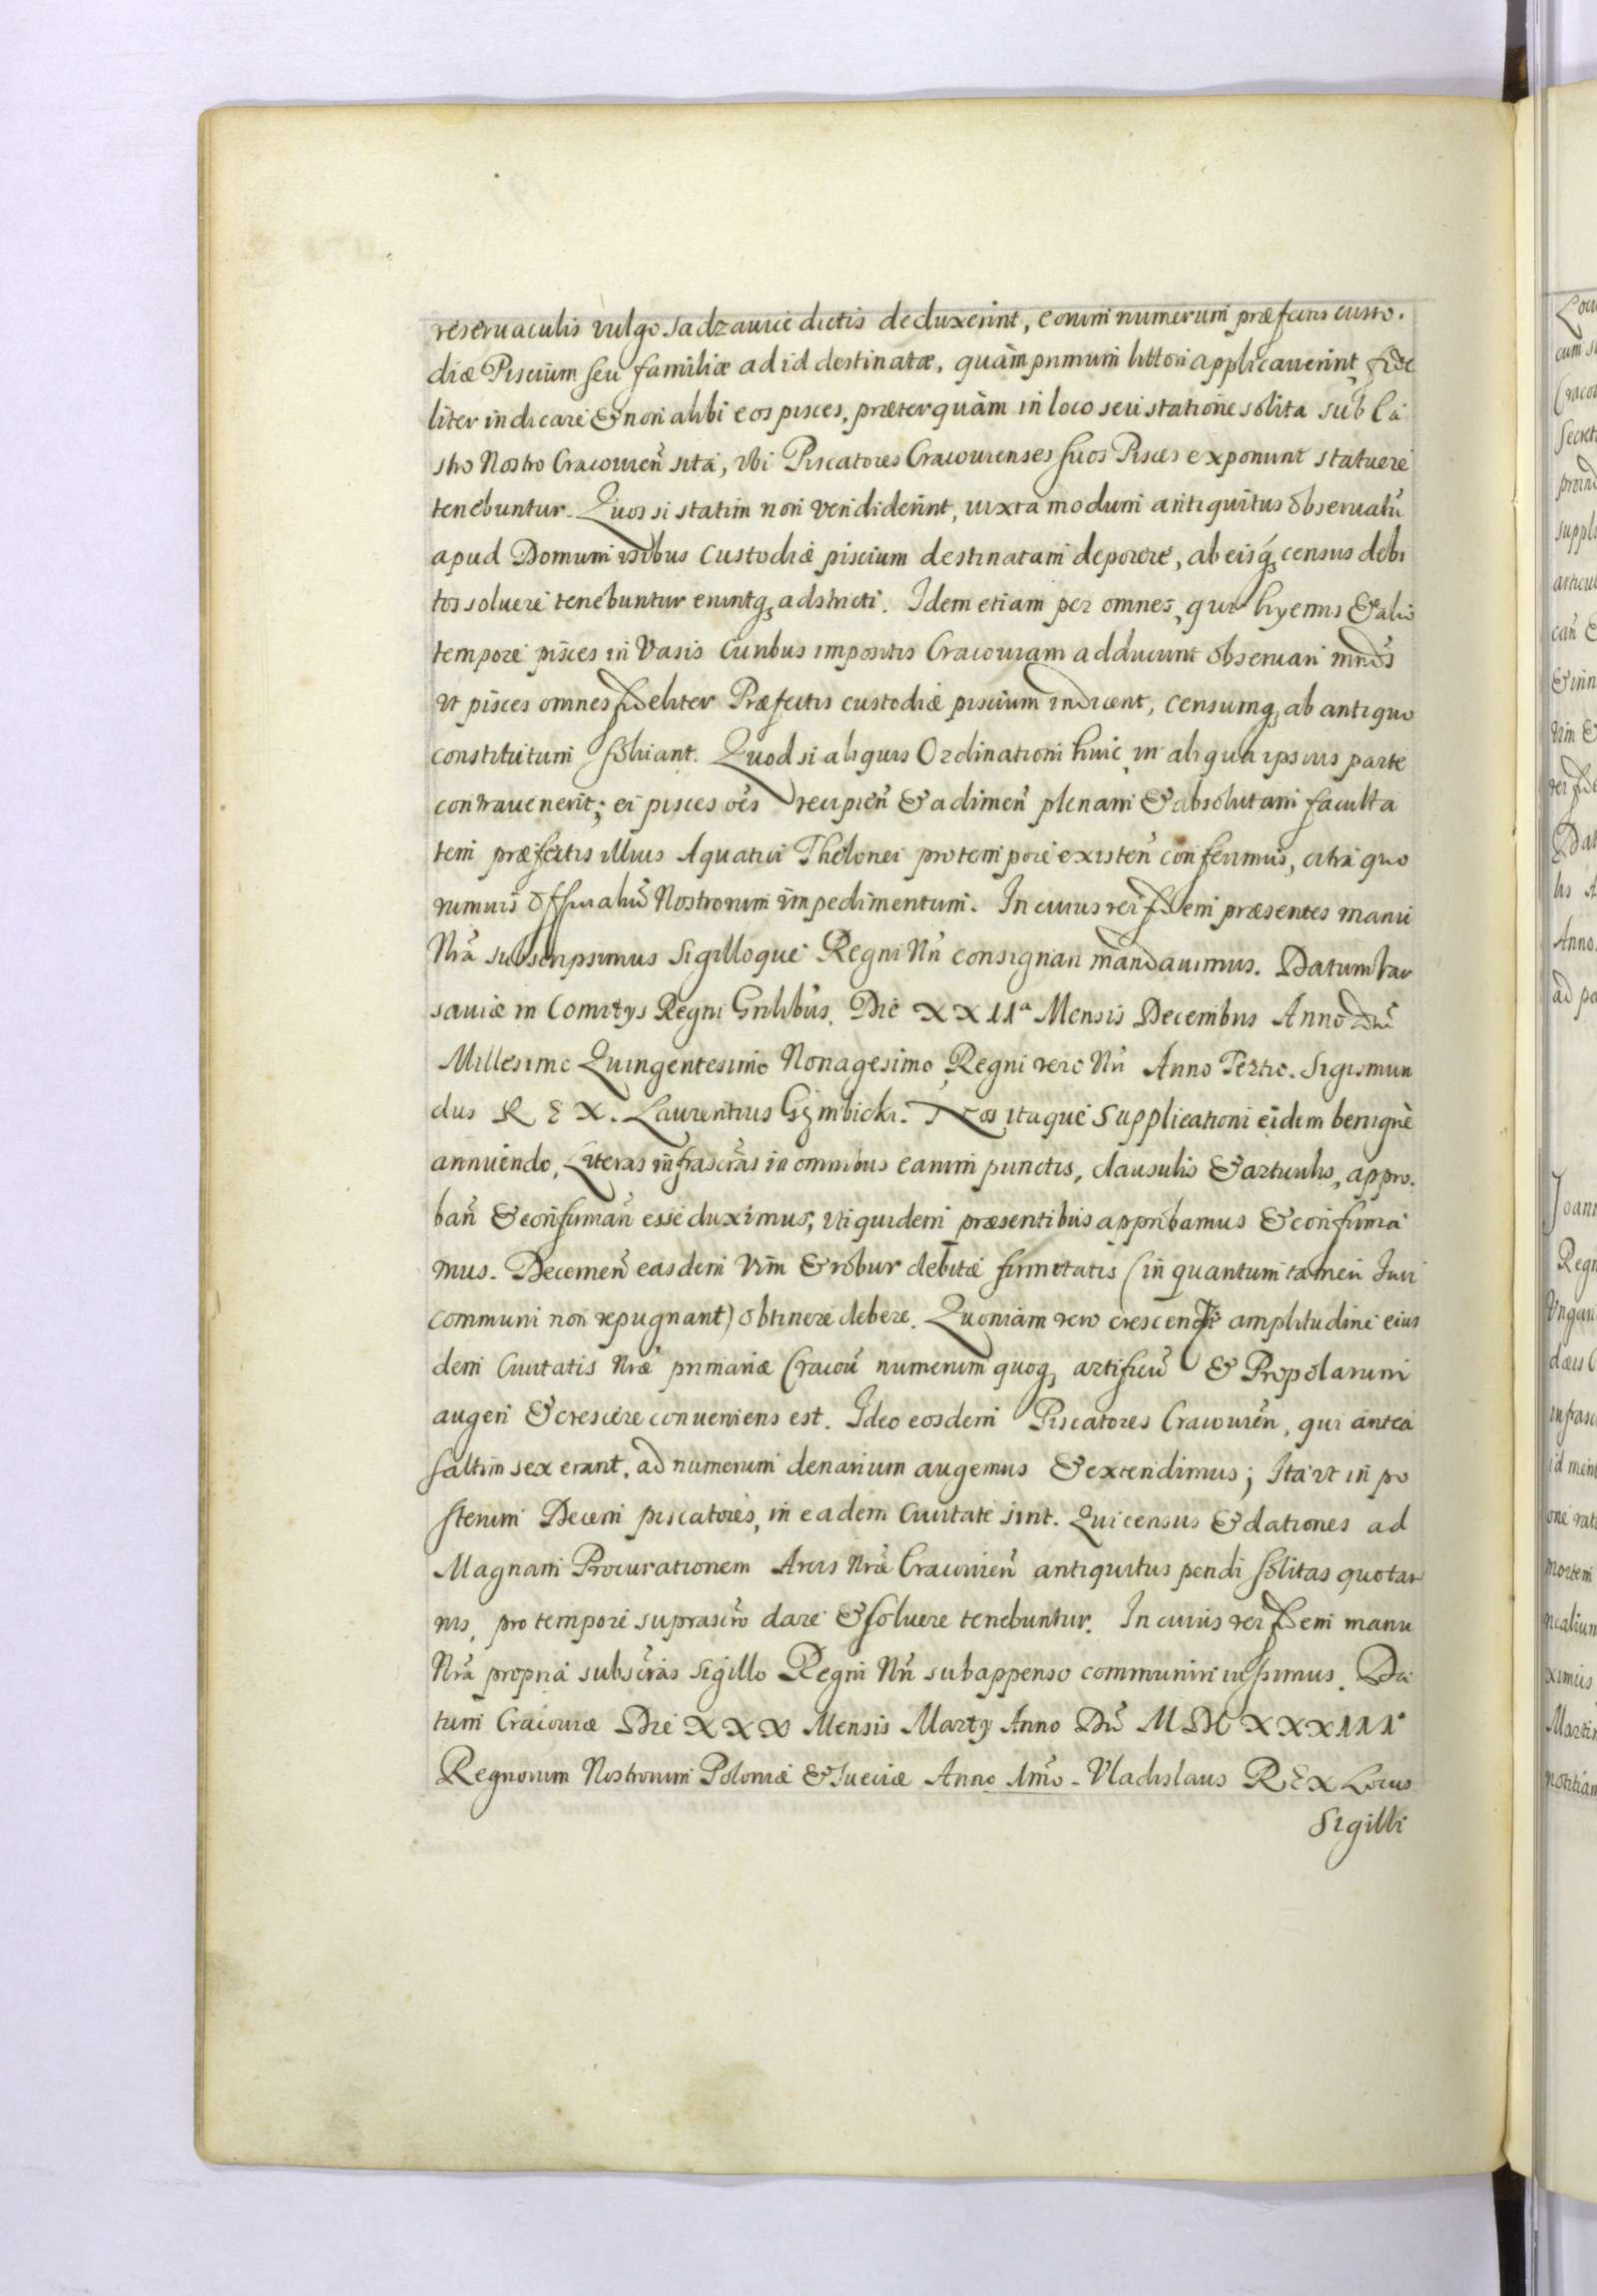 reseruaculis vulgo sadzawcè dictis deduxerint, eorum numerum præfectis custo.
diæ Piscium seu familiæ ad id destinatæ, quàm primum littori applicauerint, fide
liter indicare & non alibi eos pisces, præterquàm in loco seu statione solita sub Ca
stro Nostro Cracouien̄ sita, vbi Piscatores Cracouienses suos Pisces exponunt statuere
tenebuntur. Quos si statim non vendiderint, iuxta modum antiquitus obseruatū
apud Domum vsibus custodiæ piscium destinatam deponere, ab eisq; census debi
tos soluere tenebuntur eruntq; adstricti. Idem etiam per omnes, qui hyemis & alio
tempore pisces in Vasis Curribus impositis Cracouiam adducunt obseruari mn̄dus
vt pisces omnes fideliter Præfectis custodiæ piscium indicent, censumq; ab antiquo
constitutum soluant. Quod si aliquis Ordinationi huic in aliqua ipsius parte
contrauenerit; ei pisces oēs recipien̄ & adimen̄ plenam & absolutam faculta
tem præfectis illius Aquatici Thelonei pro tempore existen̄ conferimus, citra quo
rumuis officialiū Nostrorum impedimentum. In cuius rei fidem præsentes manu
Nrā subscripsimus Sigilloque Regni Nrī consignari mandauimus. Datum Var
sauiæ in Comitys Regni Gn̄libus. Die XXIIa Mensis Decembris Anno Dnī
Millesimo Quingentesimo Nonagesimo, Regni vero Nrī Anno Tertio. Sigismun
dus REX. Laurentius Gembicki. Nos itaque Supplicationi eidem benignè
annuendo, Literas infrascrās in omnibus earum punctis, clausulis & articulis, appro.
ban̄ & confirman̄ esse duximus, vti quidem præsentibus approbamus & confirma
mus. Decernen̄ easdem vim & robur debitæ firmitatis (in quantum tamen Iuri
communi non repugnant) obtinere debere. Quoniam vero crescendi amplitudine eius
dem Ciuitatis Nræ primariæ Cracoū numerum quoq; artificū & Propolarum
augeri & crescere conueniens est. Ideo eosdem Piscatores Cracouien̄, qui antea
saltim sex erant, ad numerum denarium augemus & extendimus; Ita vt in po
sterum Decem piscatores, in eadem Ciuitate sint. Qui census & dationes ad
Magnam Procurationem Arcis Nræ Cracouien̄ antiquitus pendi solitas quotan
nis, pro tempore suprascrō dare & soluere tenebuntur. In cuius rei fidem manu
Nrā propria subscrās Sigillo Regni Nrī subappenso communiri iussimus. Da
tum Cracouiæ Die XXX Mensis Marty Anno Dnī MDCXXXIII°
Regnorum Nostrorum Poloniæ & Sueciæ Anno 1mo. Vladislaus REX Locus
Sigilli